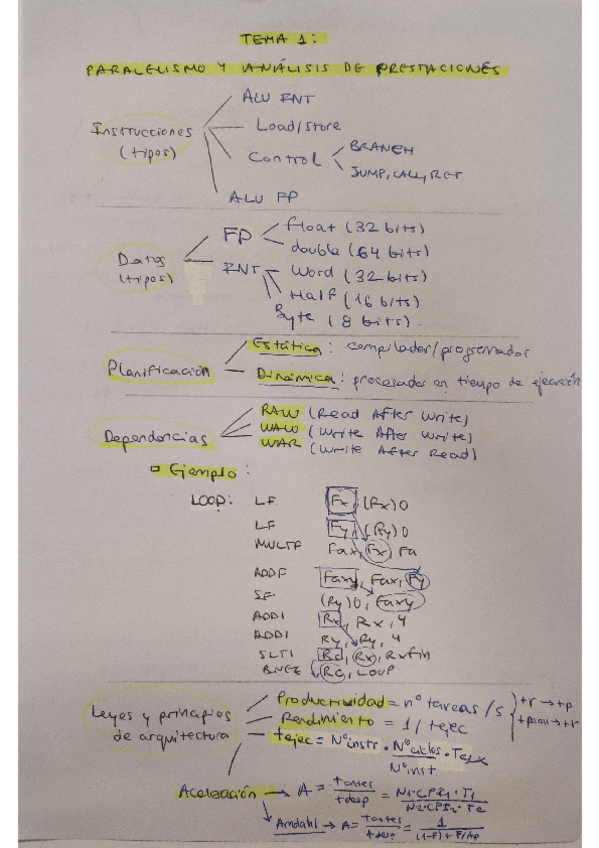 TEMA 1:
PARALELISMO Y ANÁLISIS DE PRESTACIONES
Instrucciones
(tipos)
ALU ENT
Load/store
Control
BRANCH
JUMP, CALL, RET
ALU FP
Datos
(tipos)
FP
float (32 bits)
double (64 bits)
ENT
Word (32 bits)
Half (16 bits)
Byte (8 bits).
Planificación
Estática: compilador/programador
Dinámica: procesador en tiempo de ejecución
Dependencias
RAW (Read After Write)
WAW (Write After Write)
WAR (Write After Read)
Ejemplo:
LOOP: LF Fx, (Rx)0
LF Fy, (Ry)0
MULTF Fax, Fx, Fa
ADDF Faxy, Fax, Fy
SF (Ry)0, Faxy
ADDI Rx, Rx, 4
ADDI Ry, Ry, 4
SLTI Rc, Rx, Rxfin
BNEZ Rc, LOOP
Leyes y principios
de arquitectura
Productividad = nº tareas /s
Rendimiento = 1/tejec
+r → +p
tejec = Nº instr · Nº ciclos / Nº inst · TCLK
Aceleración → A = tantes / tdesp = N1·CPI1·T1 / N2·CPI2·T2
Amdahl → A = tantes / tdesp = 1 / (1-F)+F/Ap